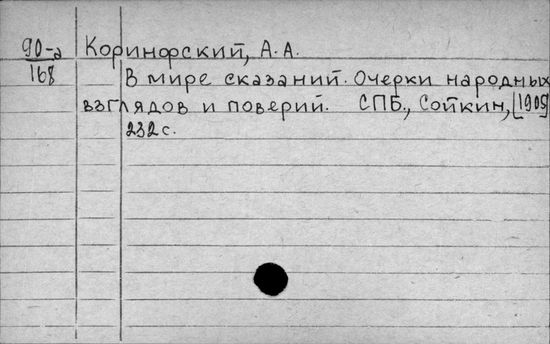 90-а Коринфский, А.А.
168
В мире сказаний. Очерки народных
взглядов и поверий. СПБ., Сойкин, [1905]
232 с.